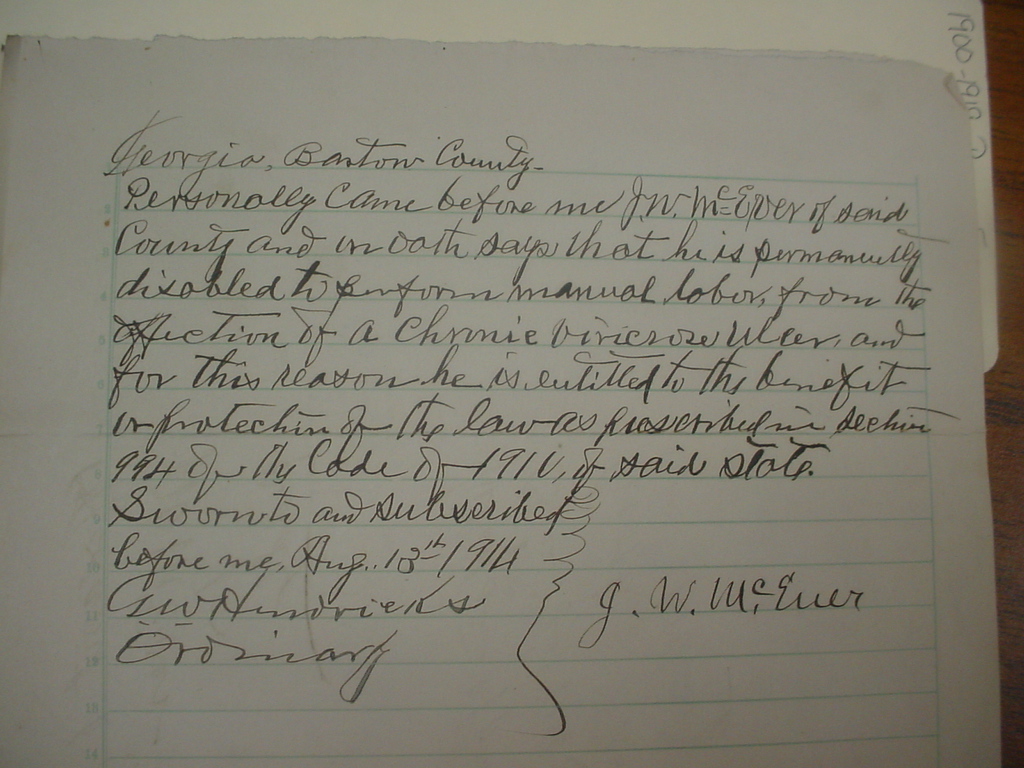 1900-1910
Georgia, Bartow County-
Personally came before me J.W. McEver of said
County and on oath says that he is permanently
disabled to perform manual labor, from the
affliction of a Chronic Viricrose Ulcer, and
for this reason he is entitled to the benefit
or protection of the law as prescribed in section
994 of the Code of 1910, of said state.
Sworn to and subscribed
before me, Aug. 13th 1914
GW Hendricks
Ordinary
J. W. McEver